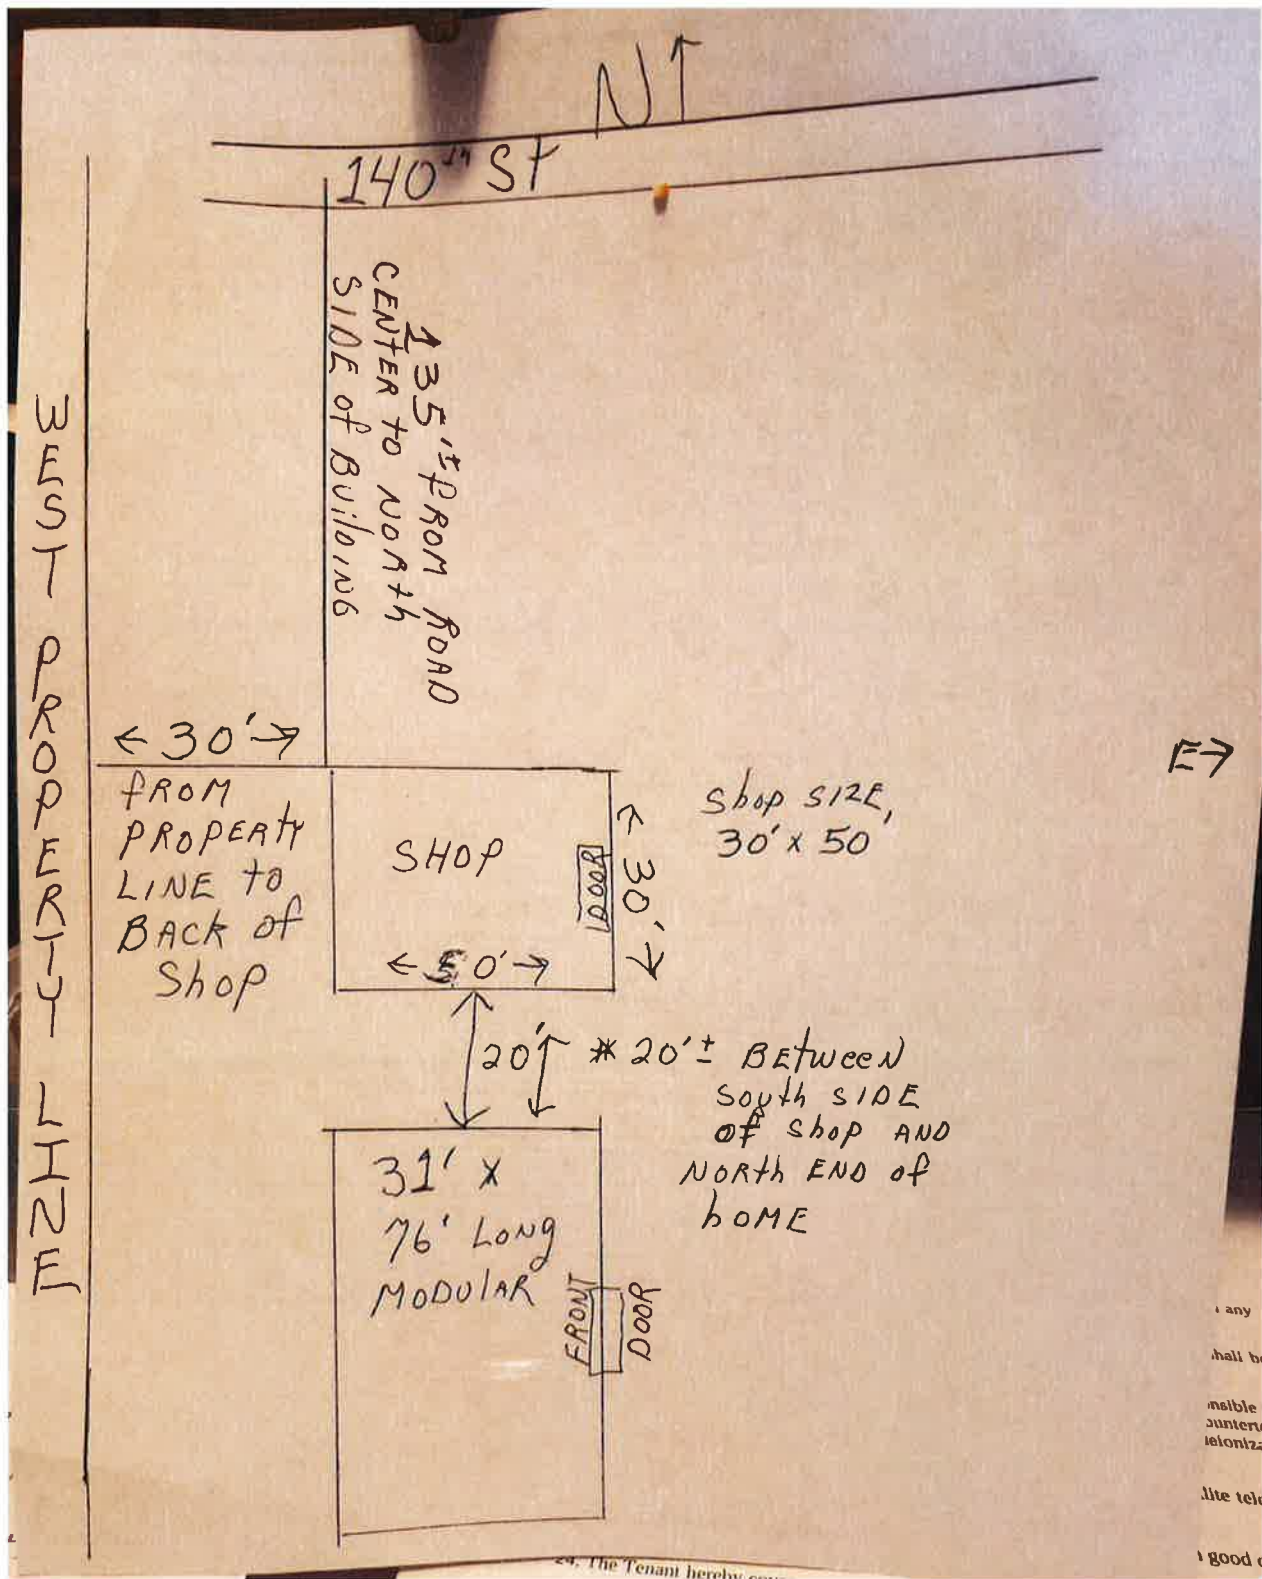 N↑
140th St
135'± FROM ROAD
CENTER to NORth
SIDE of BuilDING
WEST PROPERTY LINE
← 30' →
fROM
PROPERty
LINE to
BACK of
Shop
SHOP
DOOR
← 30' →
← 50' →
Shop SIZE,
30' x 50'
E→
20' * 20'± BETween
South SIDE
of Shop AND
NORth END of
hOME
31' x
76' LONg
MODULAR
FRONT
DOOR
any
hall be
nsible
lite tele
good
24. The Tenant hereby